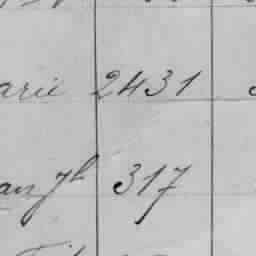 arie 2431
an Jh 317